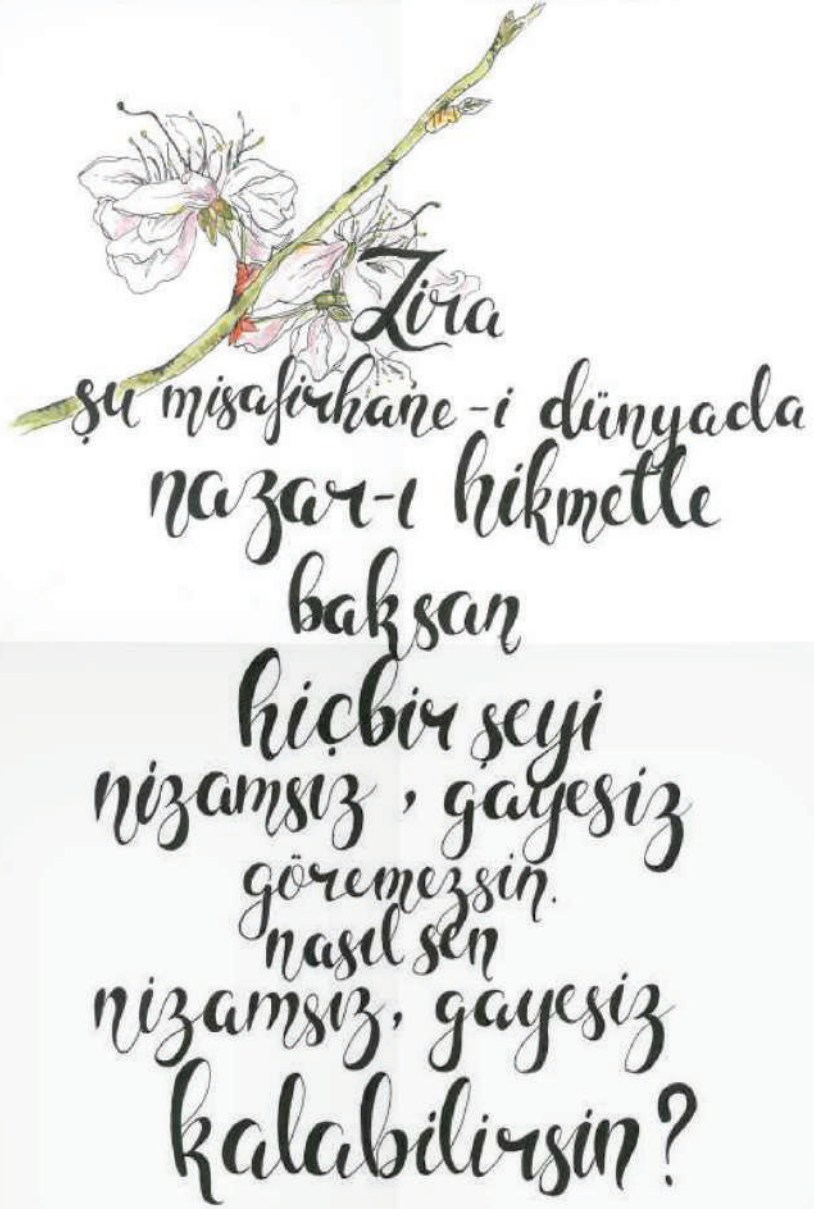 Zira
şu misafirhane-i dünyada
nazar-ı hikmetle
baksan
hiçbir şeyi
nizamsız, gayesiz
göremezsin.
nasıl sen
nizamsız, gayesiz
kalabilirsin?